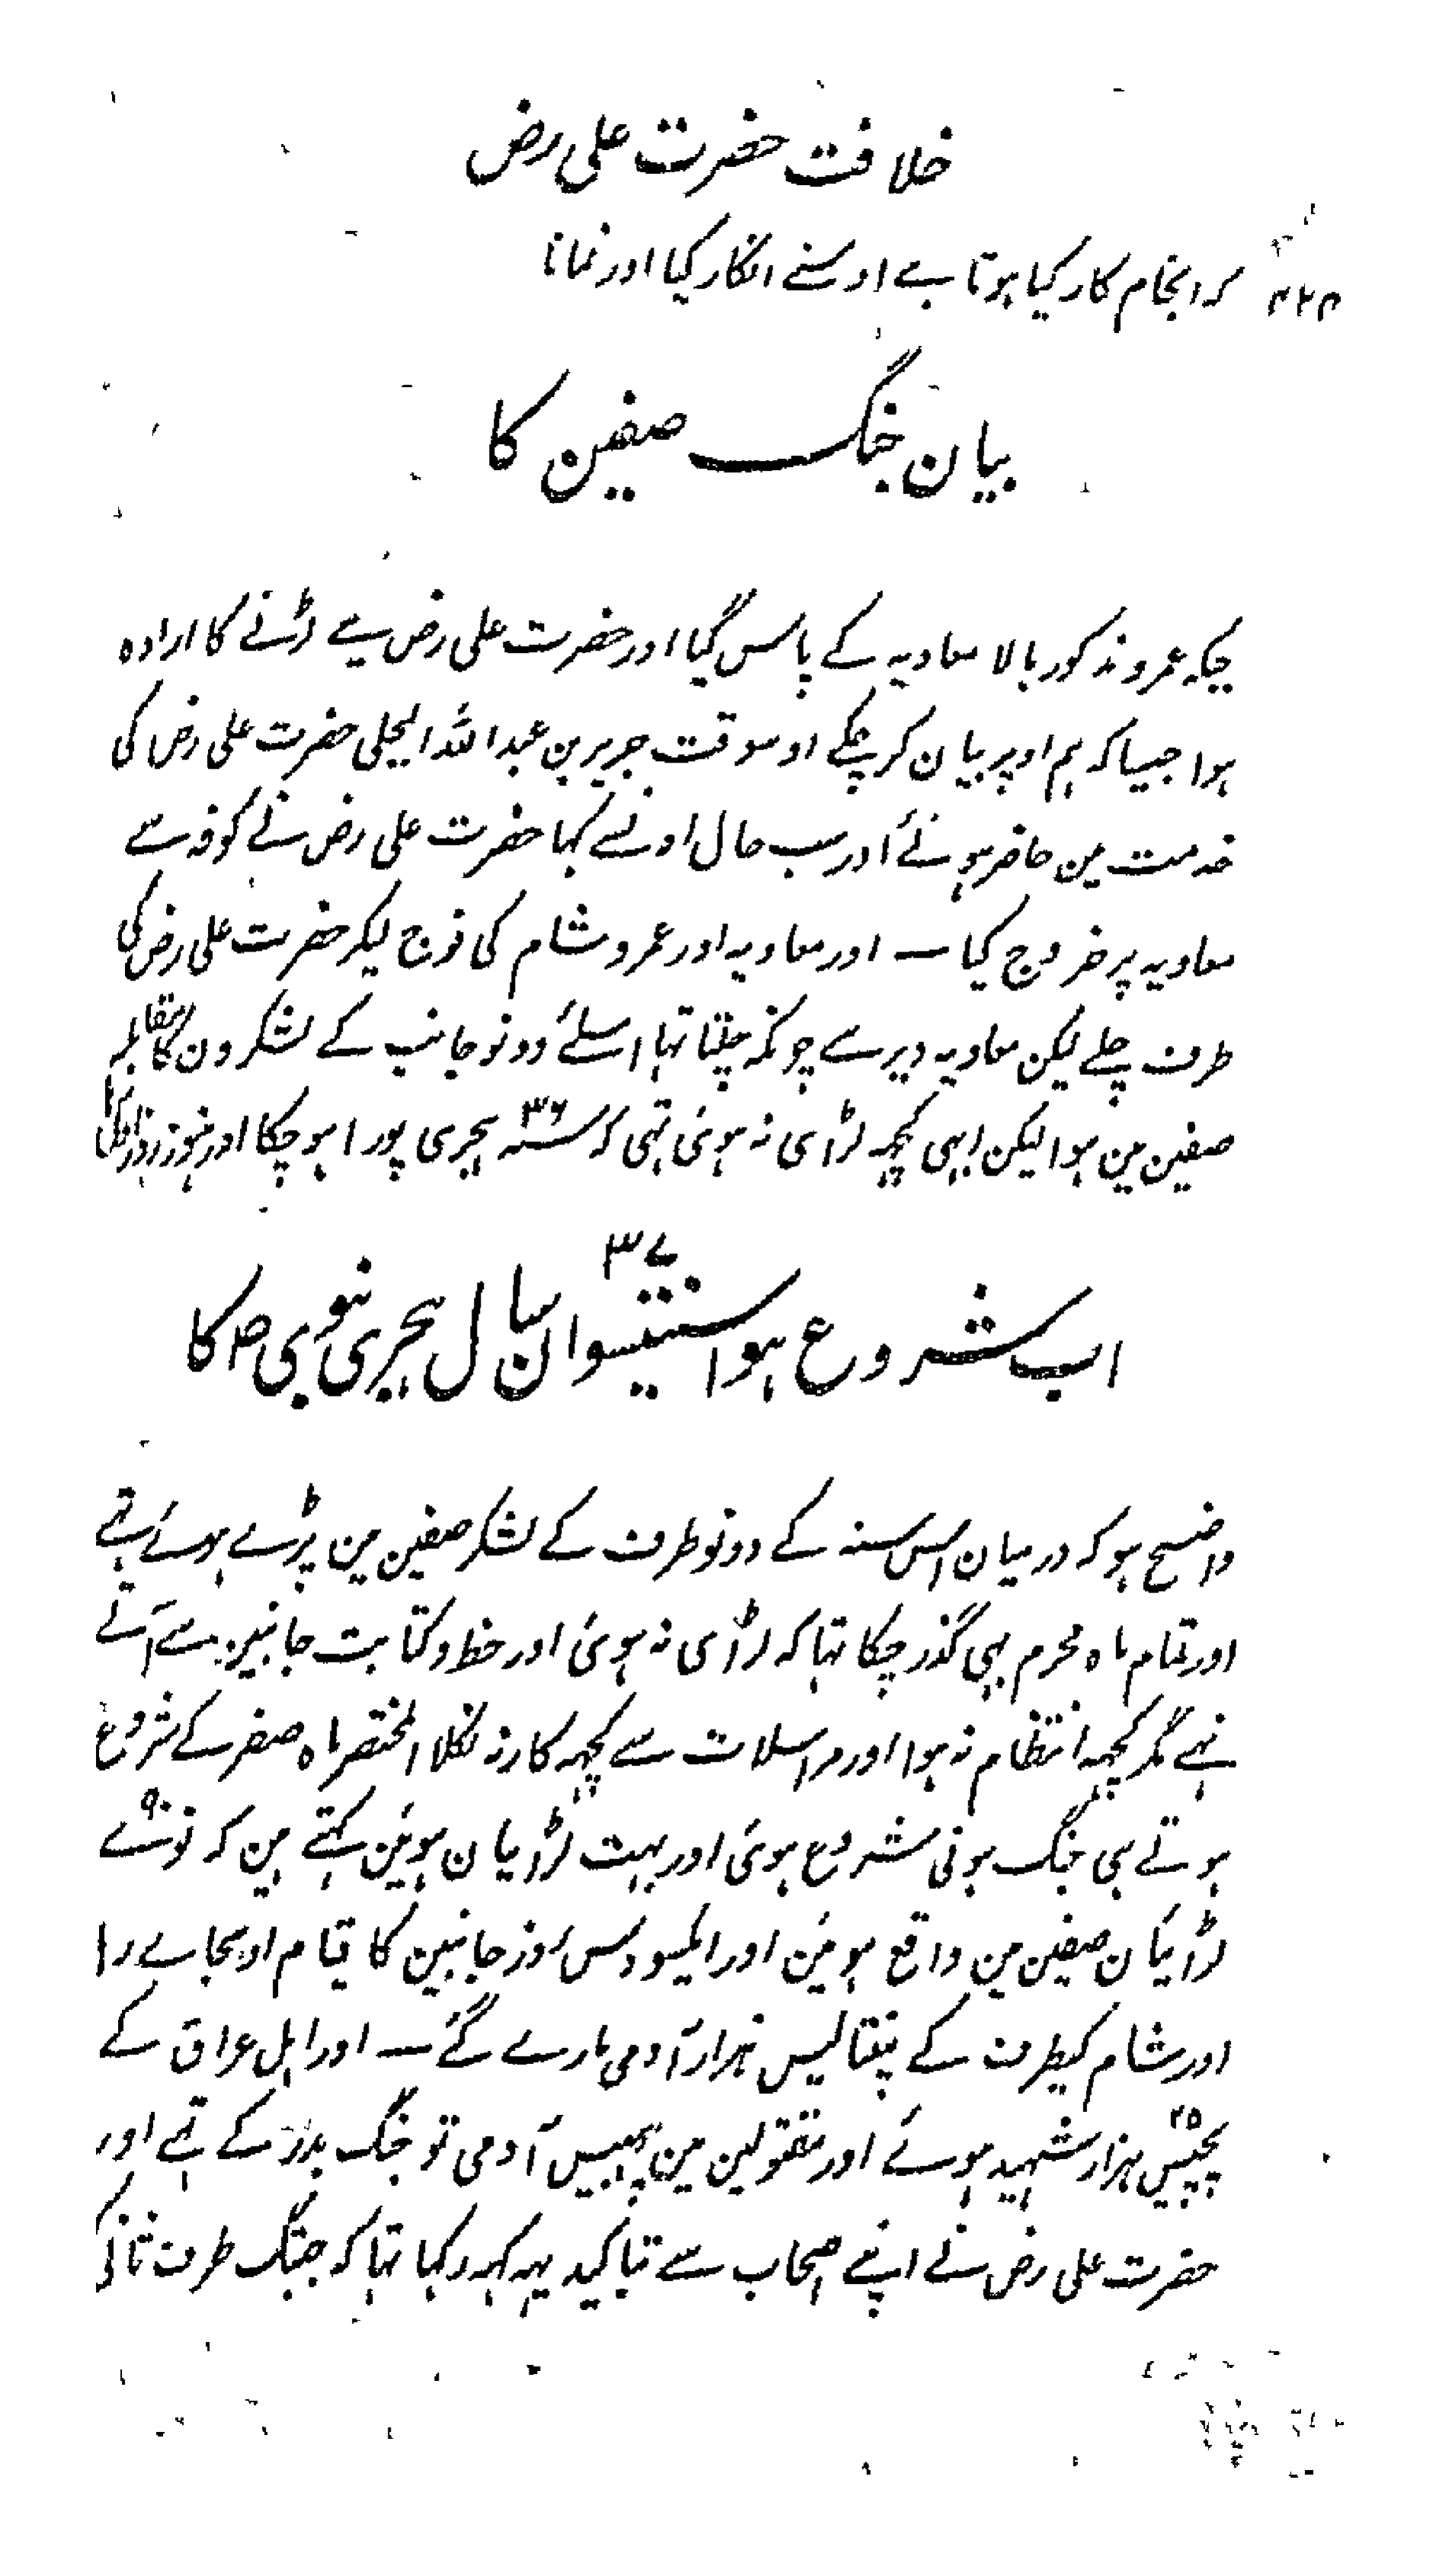 خلافت حضرت علی رض
۴۲۴ کہ انجام کار کیا ہوتا ہے اوسنے انکار کیا اور نمانا
بیان جنگ صفین کا
جبکہ عمرو مذکور بالا معاویہ کے پاس گیا اور حضرت علی رض سے لڑنے کا ارادہ
ہوا جیسا کہ ہم اوپر بیان کر چکے اوسوقت جریر بن عبد اللہ البجلی حضرت علی رض کی
خدمت مین حاضر ہوئے اور سب حال اونسے کہا حضرت علی رض نے کوفہ سے
معاویہ پر خروج کیا ـ اور معاویہ اور عمرو شام کی فوج لیکر حضرت علی رض کی
طرف چلے لیکن معاویہ دیر سے چونکہ چلتا تہا اسلئے دونو جانب کے لشکرون کا مقابلہ
صفین مین ہوا لیکن ابہی کچہہ لڑائی نہ ہوئی تہی کہ سنہ ۳۶ ہجری پورا ہو چکا اور ہنوز روز
اب شروع ہوا سنتیسوان ۳۷ سال ہجری نبوی ص کا
واضح ہو کہ درمیان اس سنہ کے دونو طرف کے لشکر صفین مین پڑے ہوئے تہے
اور تمام ماہ محرم بہی گذر چکا تہا کہ لڑائی نہ ہوئی اور خط وکتابت جانبین سے آتے
رہے مگر کچہہ انتظام نہ ہوا اور مراسلات سے کچہہ کار نہ نکلا المختصر ماہ صفر کے شروع
ہوتے ہی جنگ ہونی شروع ہوئی اور بہت لڑائیان ہوئین کہتے ہین کہ نوے ۹۰
لڑائیان صفین مین واقع ہوئین اور ایکسودس روز جانبین کا قیام اوسجاے رہا
اور شام کیطرف کے پینتالیس ہزار آدمی مارے گئے ـ اور اہل عراق کے
پچیس ۲۵ ہزار شہید ہوئے اور مقتولین مین چہبیس آدمی تو جنگ بدر کے تہے اور
حضرت علی رض نے اپنے اصحاب سے بتاکید یہہ کہہ رکہا تہا کہ جبتک طرف ثانی